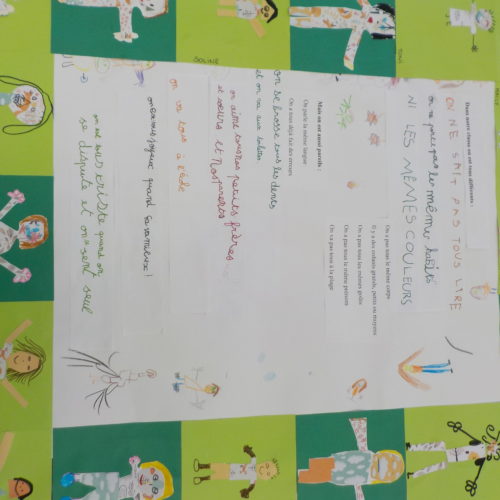 Dans notre classe on est tous différents :
ON NE SAIT PAS TOUS LIRE
on ne porte pas les même habits
NI LES MÊMES COULEURS
On a pas tous le même corps
Il y a des enfants grands, petits ou moyens
On a pas tous les mêmes goûts
On a pas tous le même prénom
On va pas tous à la plage
Mais on est aussi pareils :
On parle la même langue
On a tous déjà fait des erreurs
on se brosse tous les dents
et on va aux toilettes
on aime tous nos petits frères
et soeurs et nos parents
on va tous à l'école
on est tous joyeux quand ça va mieux
on est tous triste quand on
se dispute et on se sent seul